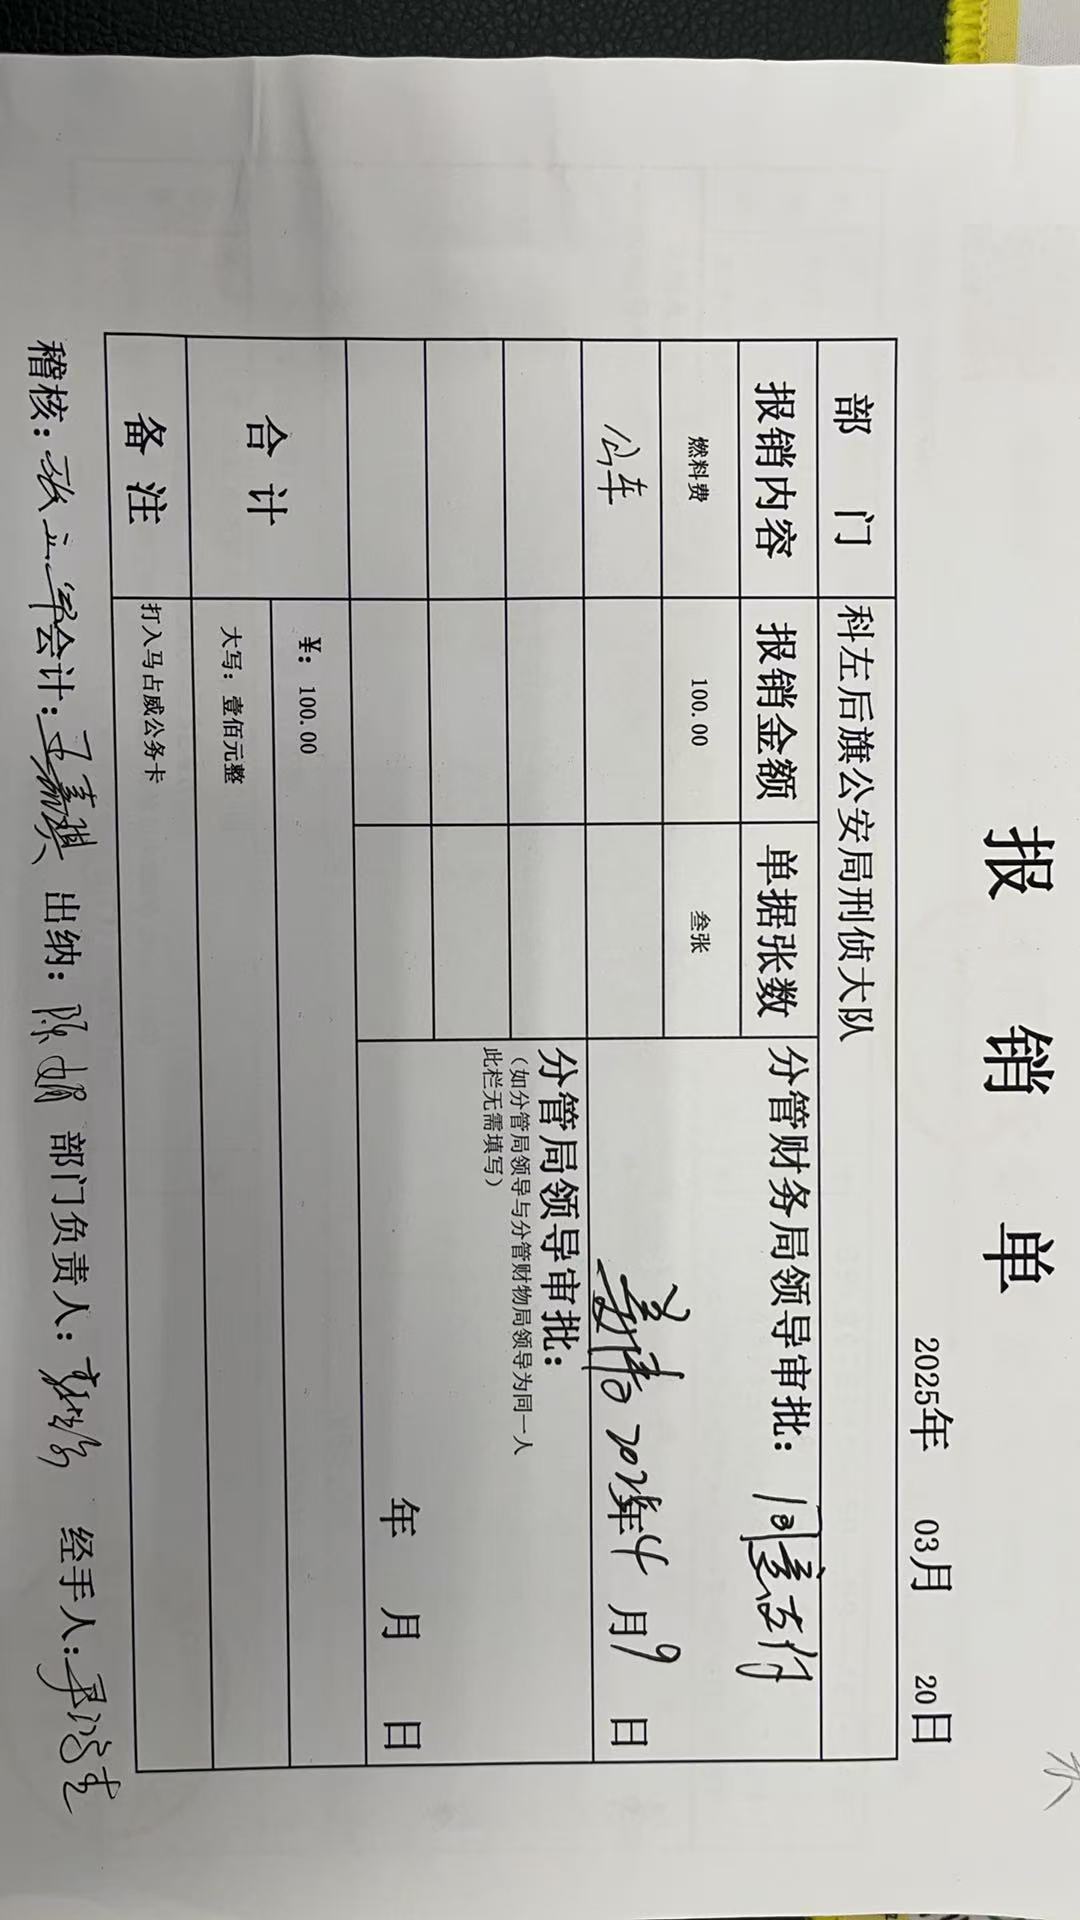 报 销 单
2025年 03月 20日
部 门 科左后旗公安局刑侦大队
报销内容 报销金额 单据张数 分管财务局领导审批：同意支付
燃料费 100.00 叁张
公车 2025年4月9日
分管局领导审批：
（如分管局领导与分管财物局领导为同一人
此栏无需填写）
年 月 日
合 计 ￥：100.00
大写：壹佰元整
备 注 打入马占威公务卡
稽核： 会计： 出纳： 部门负责人： 经手人：